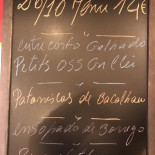 20/10 Menu 12€
Entrecosto Grelhado
Petits OSS Grillés
Pataniscas de Bacalhau
Ensopado de Borrego